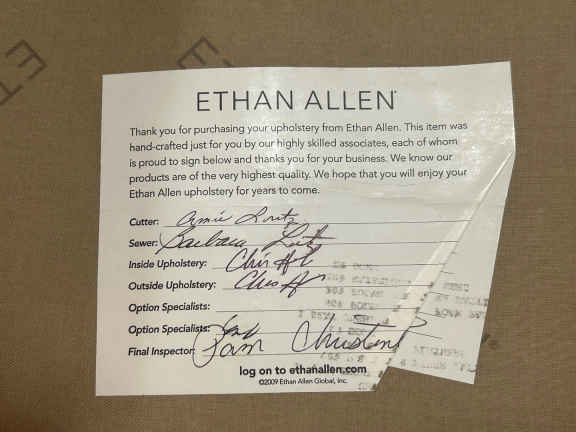 ETHAN ALLEN
Thank you for purchasing your upholstery from Ethan Allen. This item was
hand-crafted just for you by our highly skilled associates, each of whom
is proud to sign below and thanks you for your business. We know our
products are of the very highest quality. We hope that you will enjoy your
Ethan Allen upholstery for years to come.
Cutter: Amie Lortz
Sewer: Barbara
Inside Upholstery: Chris
Outside Upholstery: Chris
Option Specialists:
Option Specialists:
Final Inspector: Pam
log on to ethanallen.com
©2009 Ethan Allen Global, Inc.